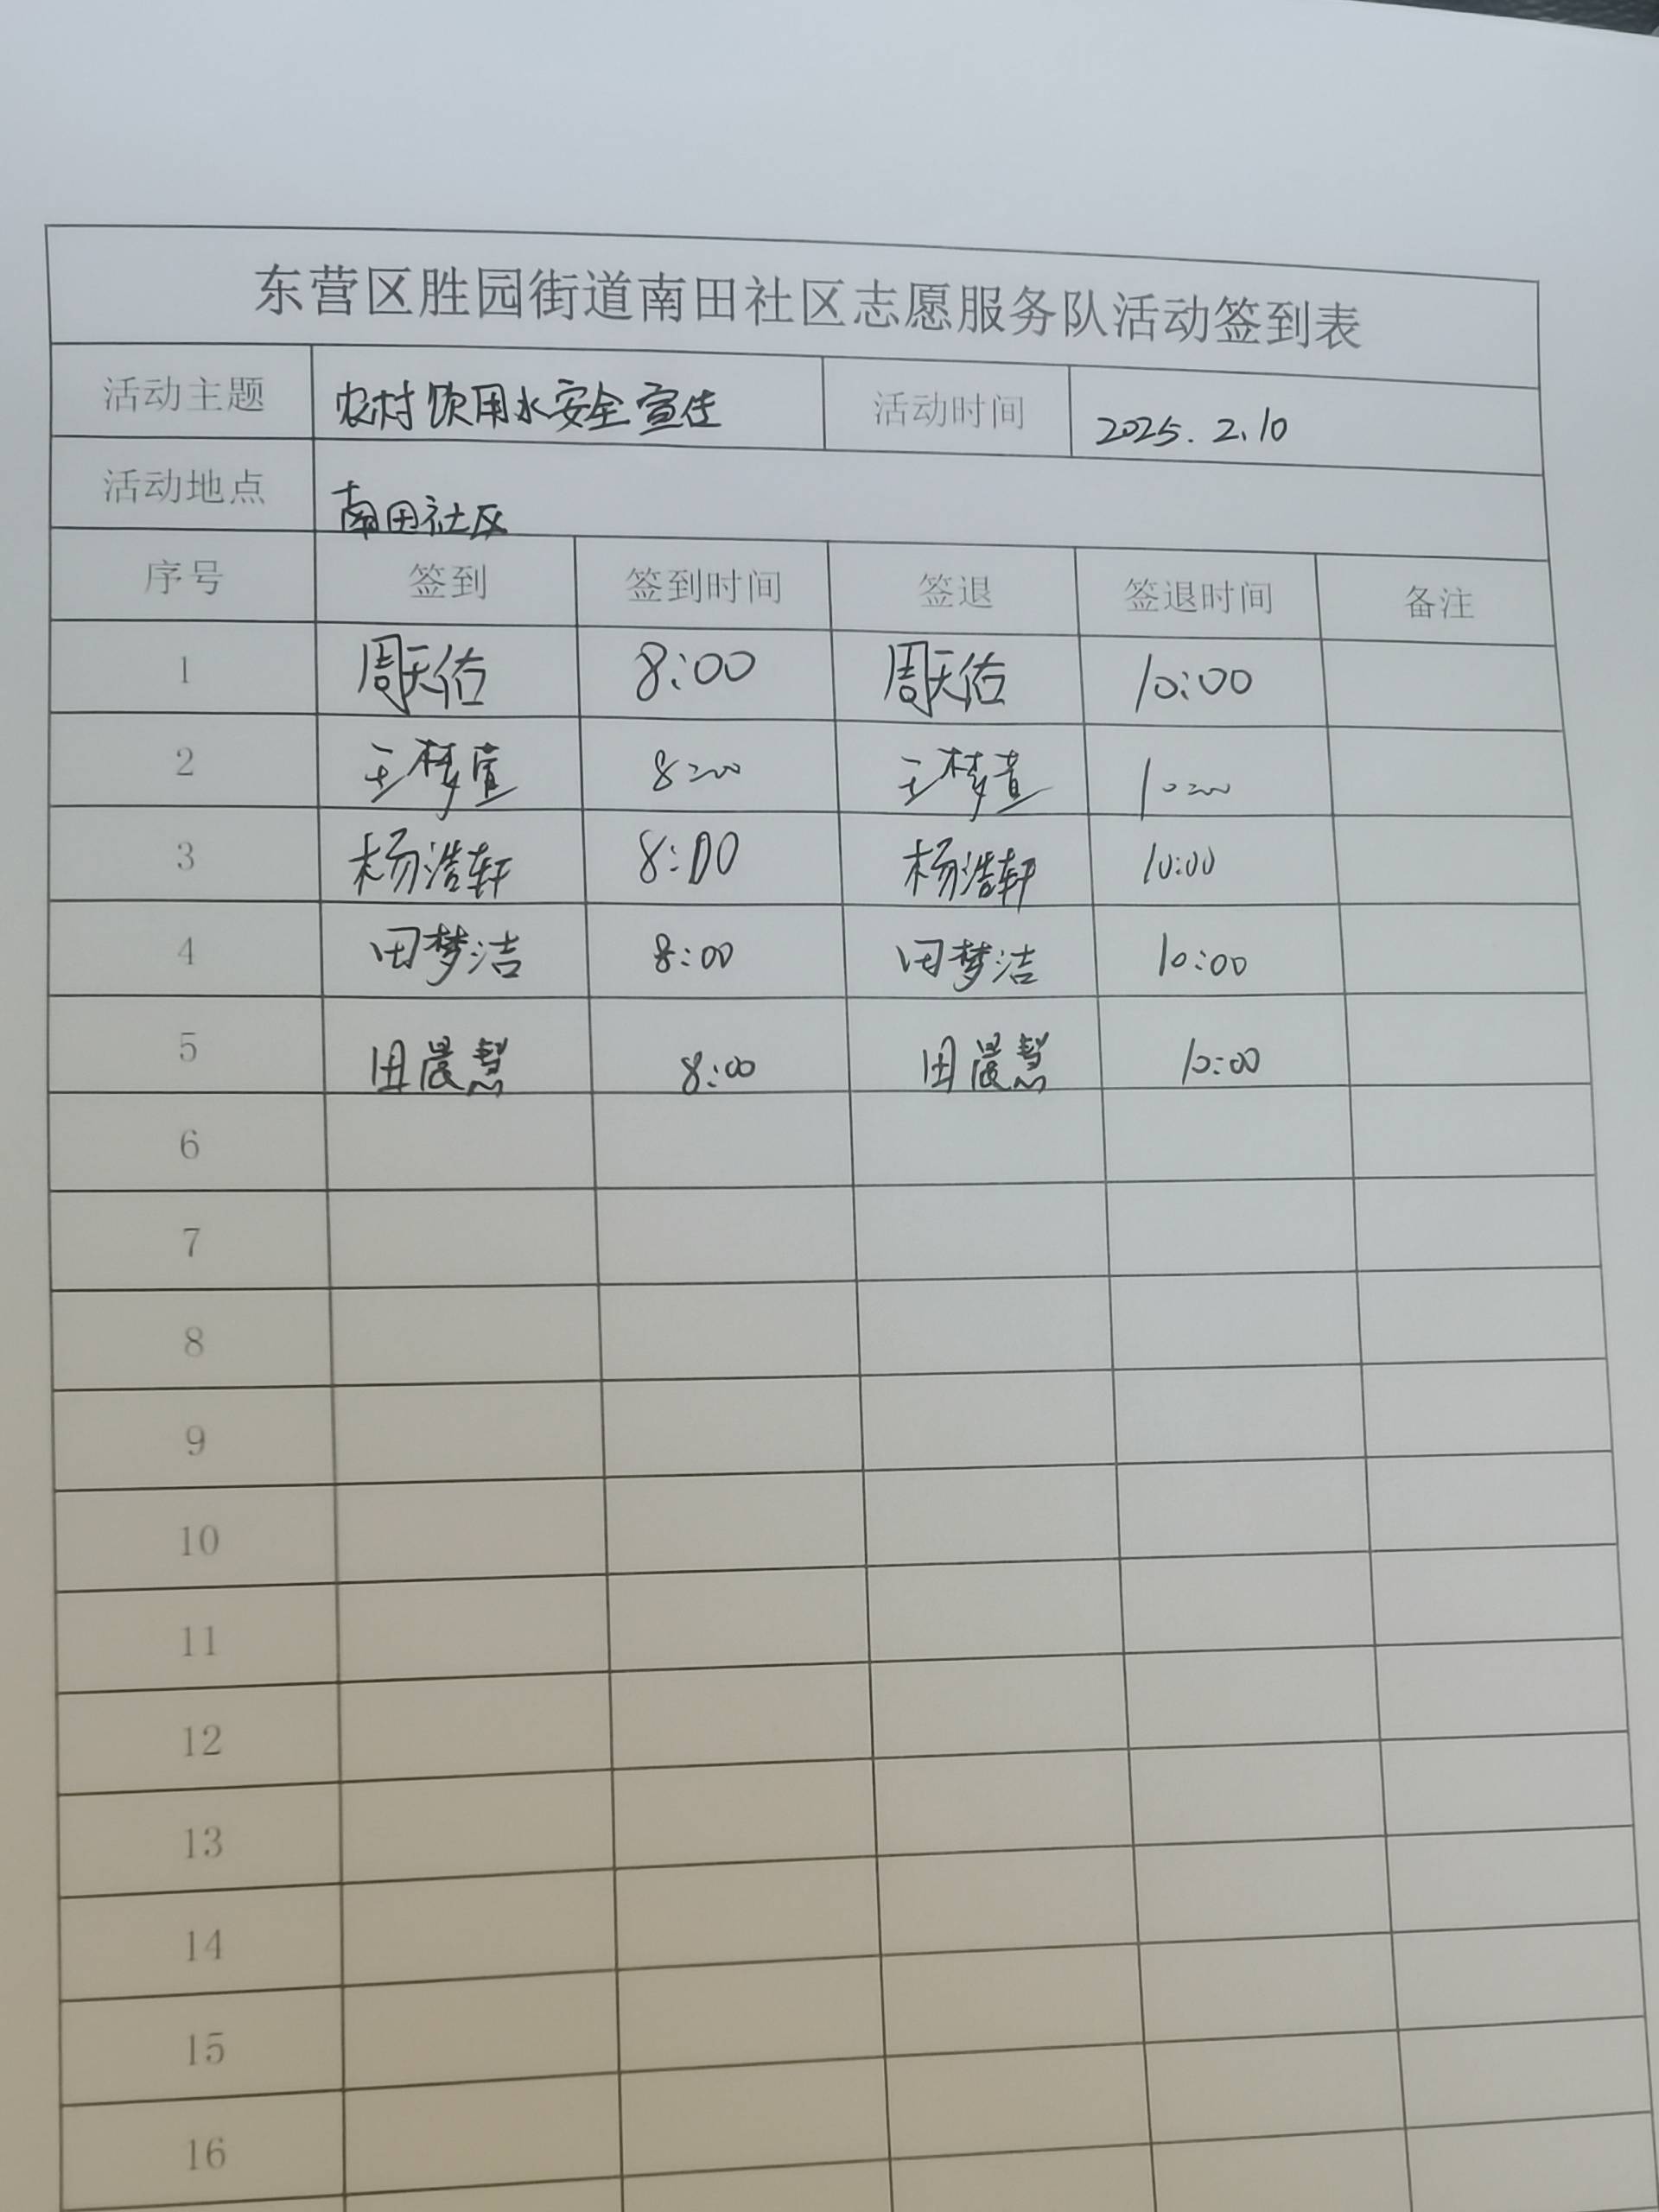 东营区胜园街道南田社区志愿服务队活动签到表
活动主题 农村饮用水安全宣传 活动时间 2025.2.10
活动地点 南田社区
序号 签到 签到时间 签退 签退时间 备注
1 周天佑 8:00 周天佑 10:00
2 王梦萱 8:00 王梦萱 10:00
3 杨浩轩 8:00 杨浩轩 10:00
4 田梦洁 8:00 田梦洁 10:00
5 田晨慧 8:00 田晨慧 10:00
6
7
8
9
10
11
12
13
14
15
16